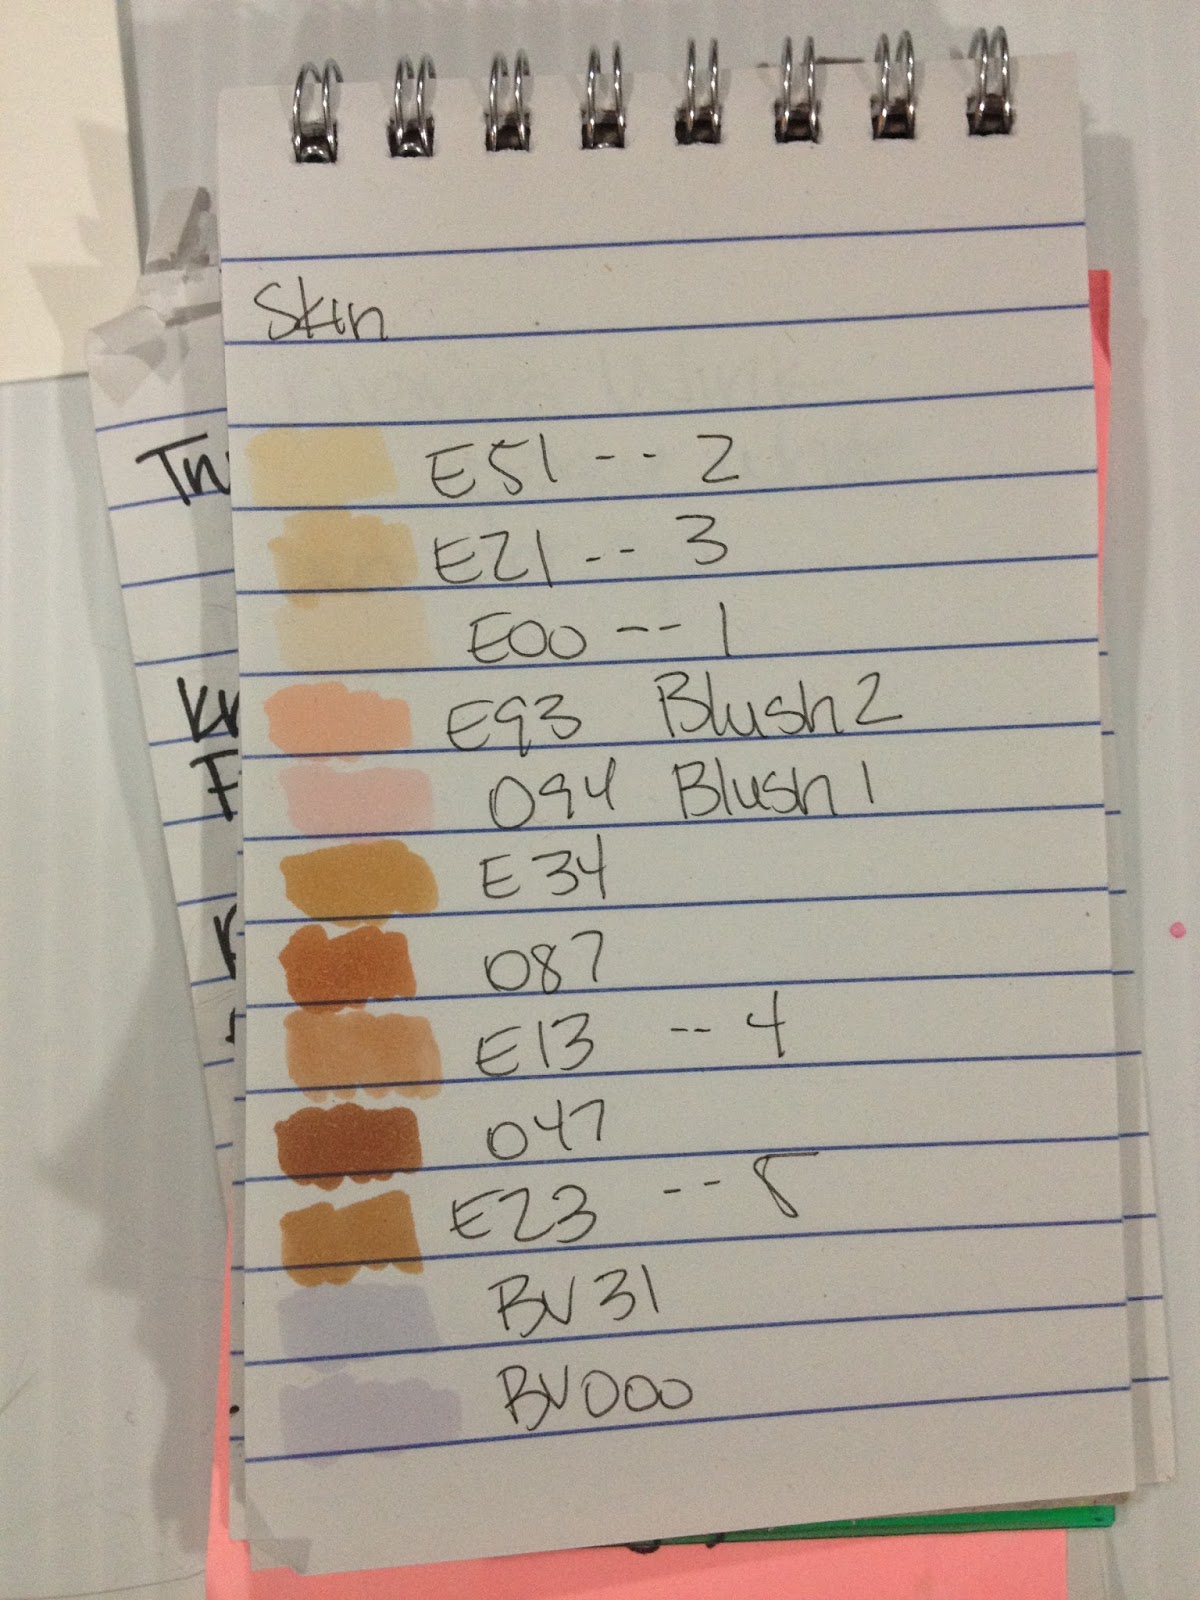 Skin
E51 -- 2
E21 -- 3
E00 -- 1
E93 Blush 2
094 Blush 1
E34
087
E13 -- 4
047
E23 -- 5
BV31
BV000
Tn